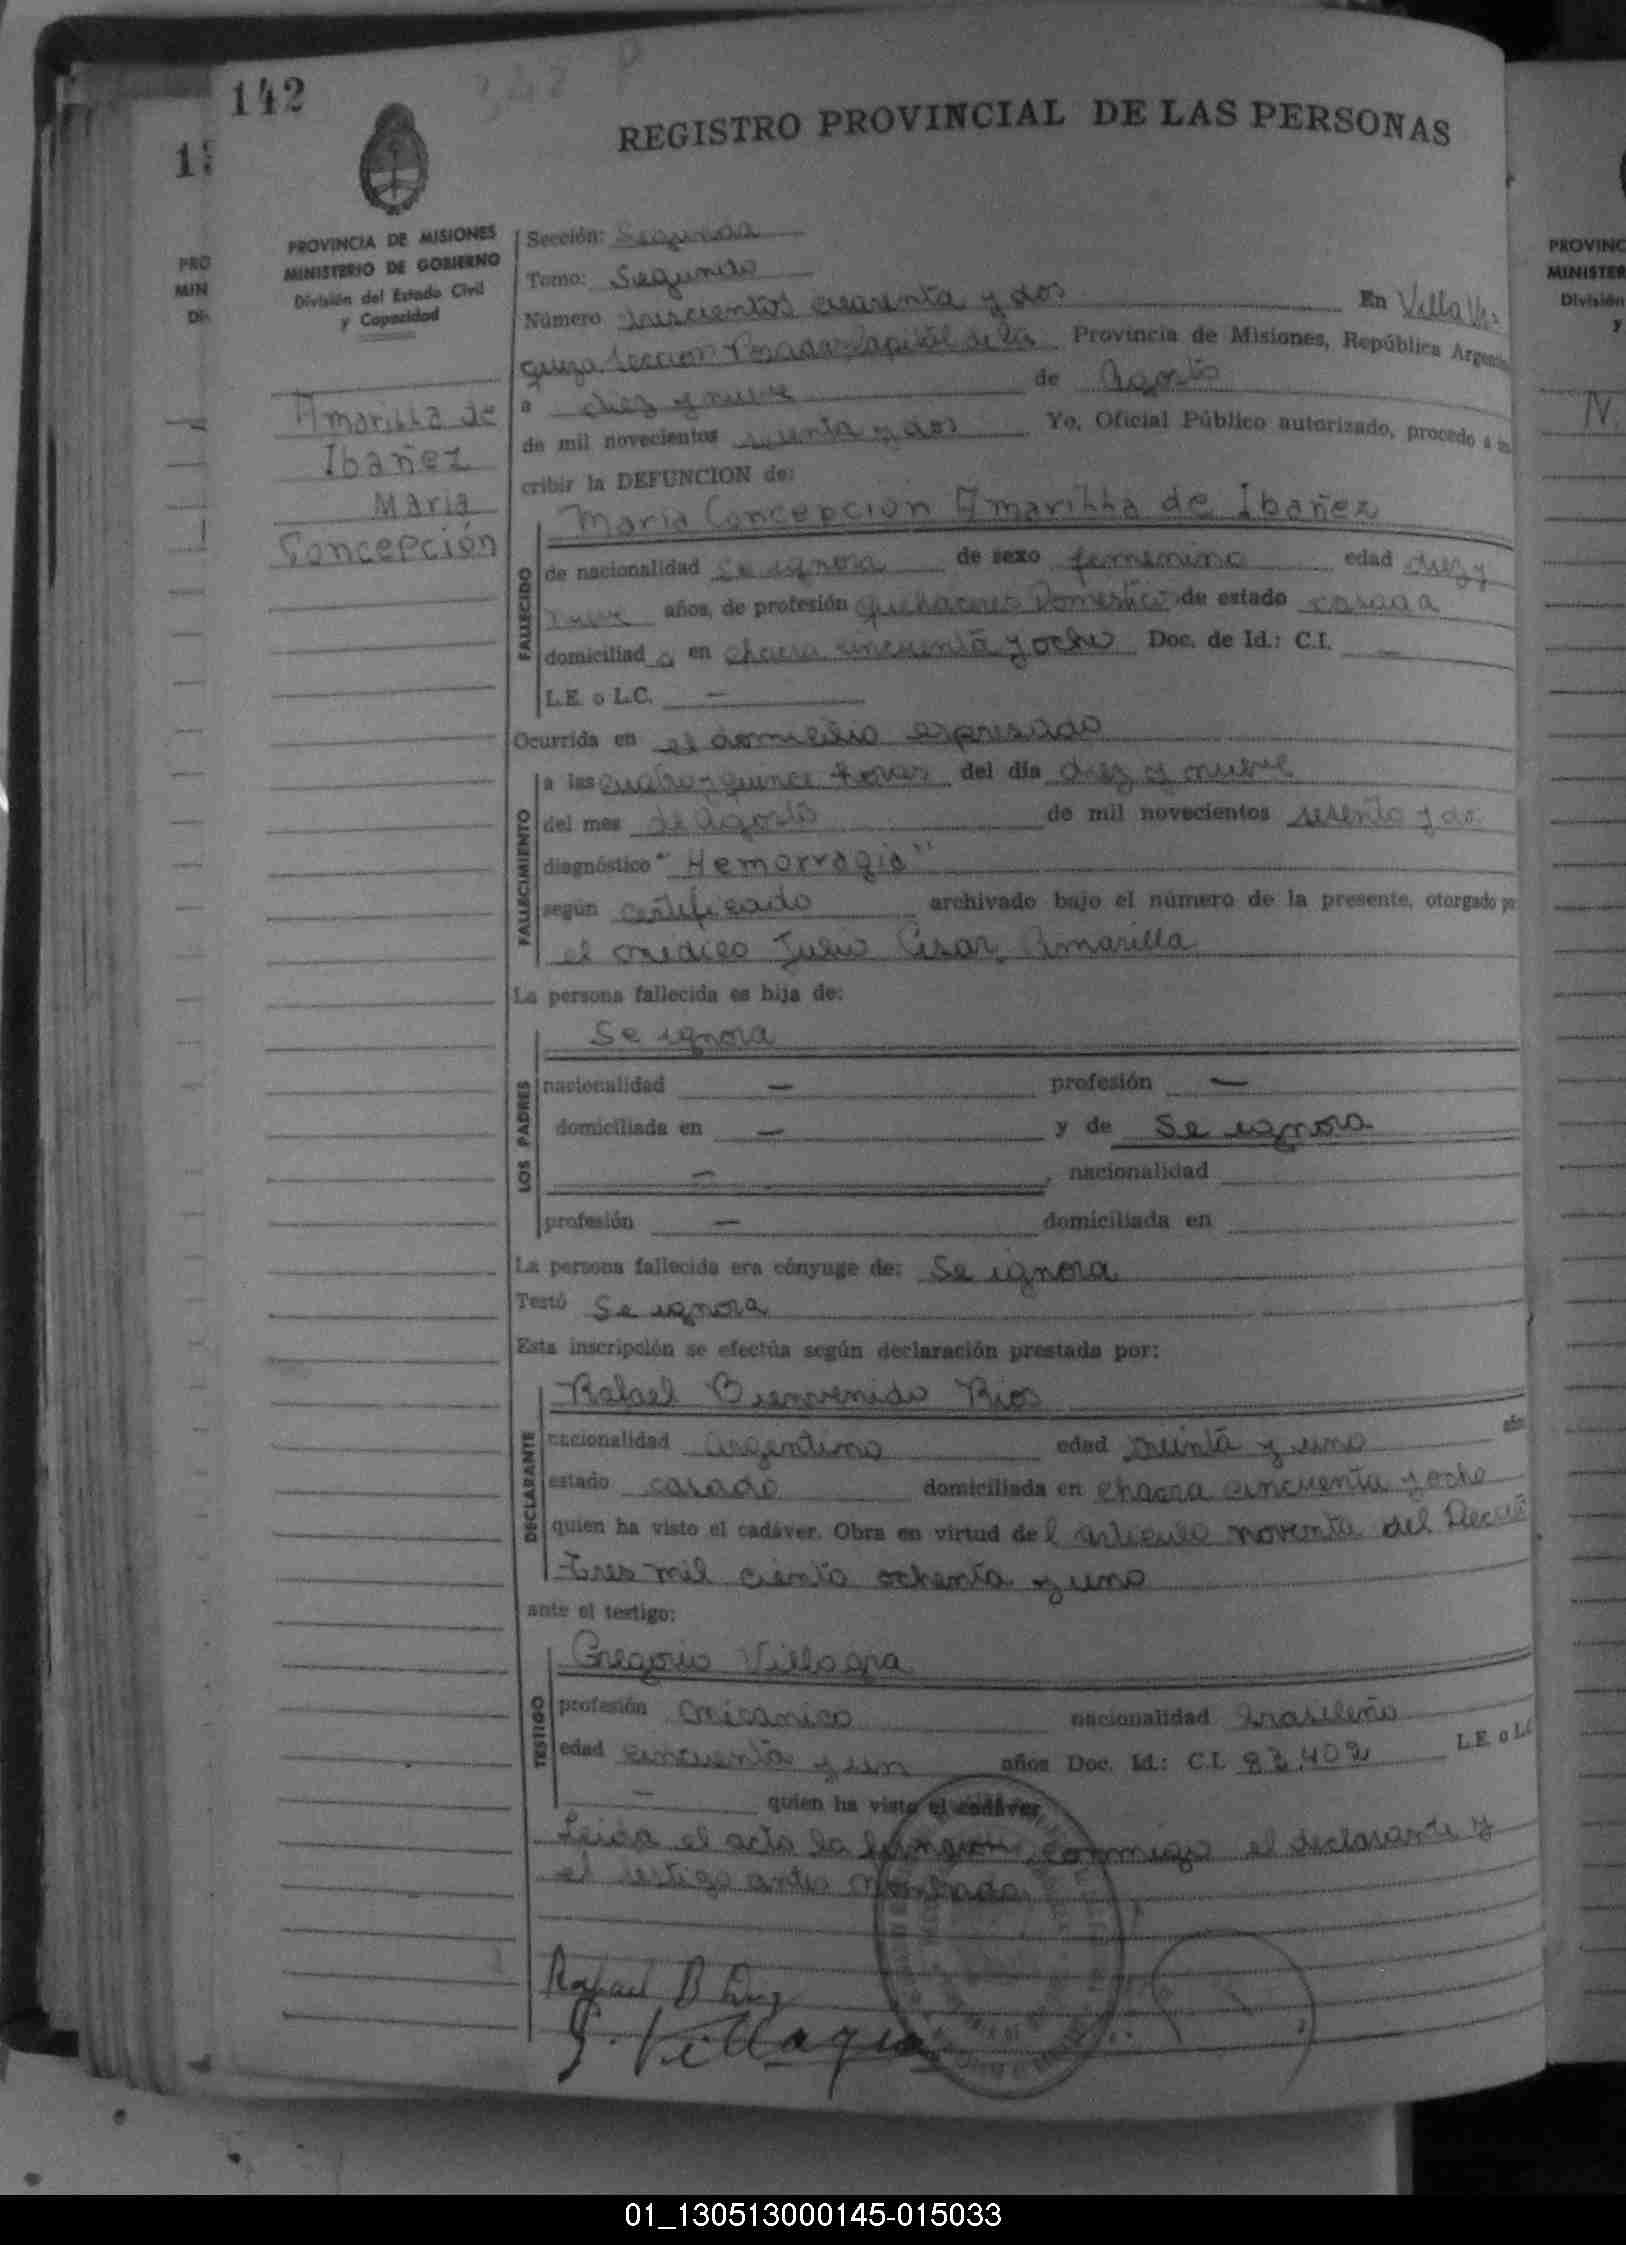 142
342 P
REGISTRO PROVINCIAL DE LAS PERSONAS
PROVINCIA DE MISIONES
MINISTERIO DE GOBIERNO
División del Estado Civil
y Capacidad
Amarilla de
Ibañez
Maria
Concepción
Sección: Segunda
Tomo: Segundo
Número trescientos cuarenta y dos En Villa Ur
quiza Seccion Posadas Capital de la Provincia de Misiones, República Argentina
a diez y nueve de Agosto
de mil novecientos sesenta y dos Yo, Oficial Público autorizado, procedo a ins
cribir la DEFUNCION de:
Maria Concepción Amarilla de Ibañez
FALLECIDO
de nacionalidad se ignora de sexo femenino edad diez y
nueve años, de profesión quehaceres Domestico de estado casada
domiciliad a en chacra cincuenta y ocho Doc. de Id.: C.I. —
L.E. o L.C. —
Ocurrida en el domicilio expresado
FALLECIMIENTO
a las cuatro y quince horas del día diez y nueve
del mes de Agosto de mil novecientos sesenta y dos
diagnóstico "Hemorragia"
según certificado archivado bajo el número de la presente, otorgado por
el médico Julio Cesar Amarilla
La persona fallecida es hija de:
LOS PADRES
Se ignora
nacionalidad — profesión —
domiciliada en — y de Se ignora
—, nacionalidad
profesión — domiciliada en
La persona fallecida era cónyuge de: Se ignora
Testó Se ignora
Esta inscripción se efectúa según declaración prestada por:
DECLARANTE
Rafael Bienvenido Rios
nacionalidad argentino edad treinta y uno años
estado casado domiciliada en chacra cincuenta y ocho
quien ha visto el cadáver. Obra en virtud del articulo noventa del Decreto
tres mil ciento ochenta y uno
ante el testigo:
TESTIGO
Gregorio Villagra
profesión mecanico nacionalidad brasileño
edad cincuenta y un años Doc. Id.: C.I. 82.402 L.E. o L.C.
— quien ha visto el cadáver
Leida el acta la firman conmigo el declarante y
el testigo antes nombrado.
Rafael B Rios
G. Villagra
PROVINC
MINISTER
División
y
01_130513000145-015033